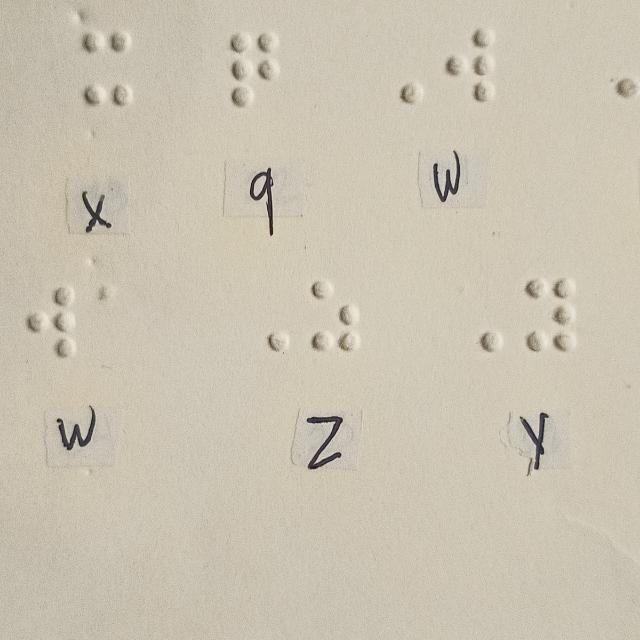 ⠭ ⠟ ⠠⠺
x q W
⠺ ⠠⠵ ⠠⠽
W Z Y